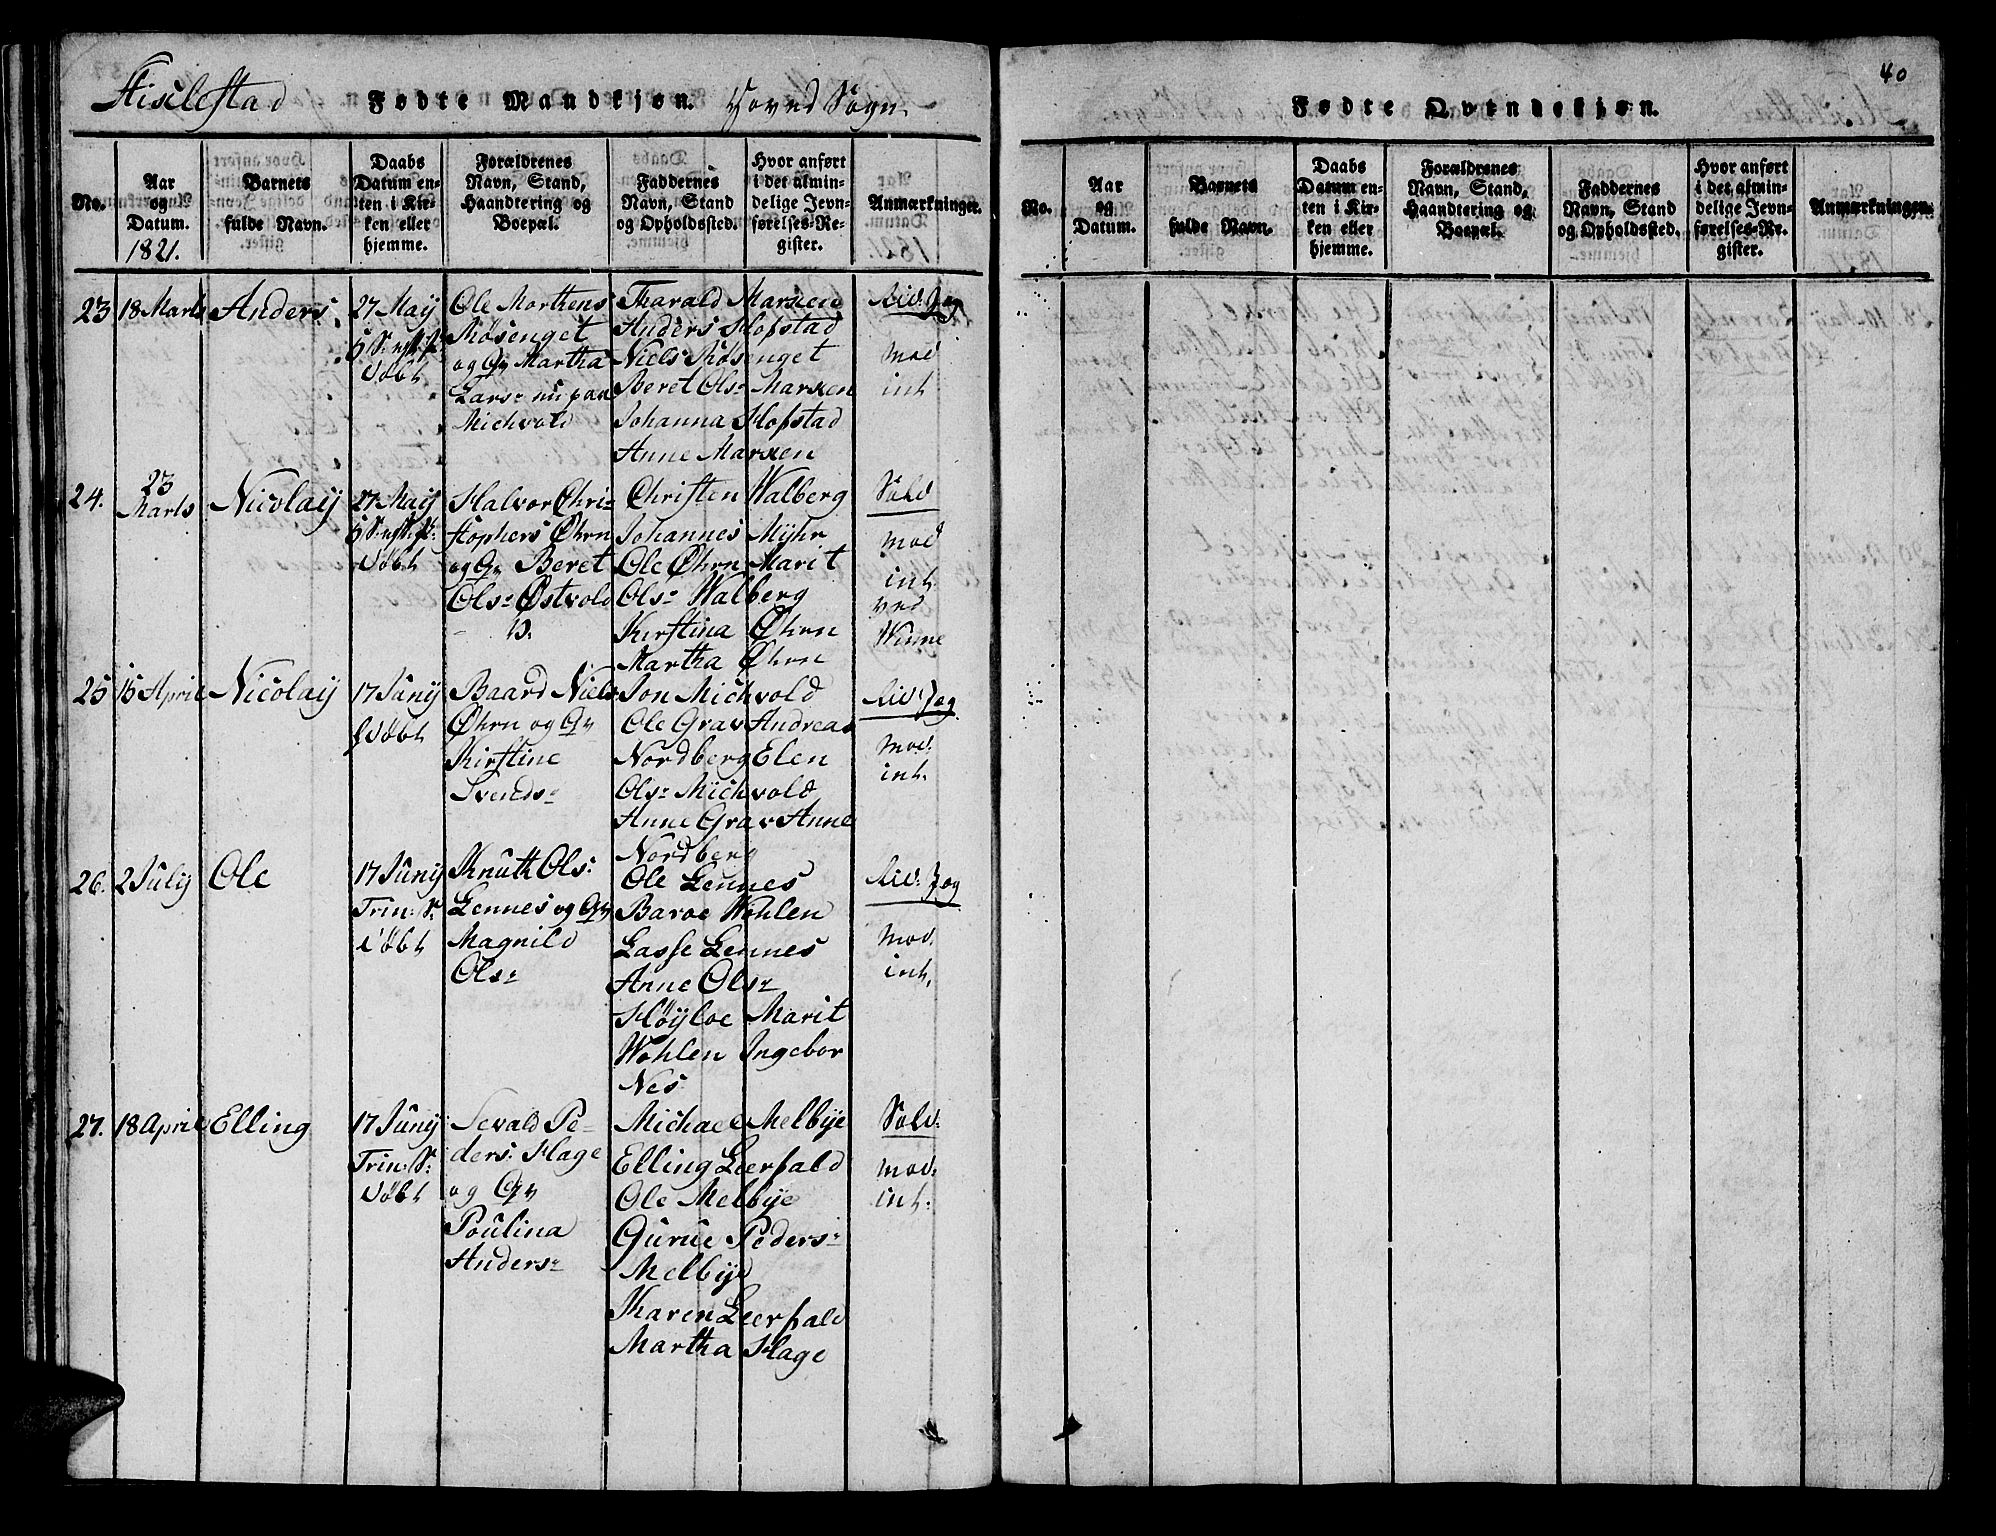 Stiklestad Fødte Mandkjøn. Hoved Sogn.
No.
Aar
og
Datum.
1821.
Barnets
fulde Navn.
Daabs
Datum en-
ten i Kir-
ken eller
hjemme.
Forældrenes
Navn, Stand,
Haandtering og
Boepæl.
Faddernes
Navn, Stand
og Opholdssted.
Hvor anført
i det almin-
delige Jevn-
førelses-Re-
gister.
Anmærkninger.
23
18 Marts
Anders
27 Maij
døbt
Ole Morthens
Røsenget
og Martha
Lars:
Michvold
Tharald Marxen
Anders Hofstad
Niels Røsenget
Beret Ols: Marxen
Johanna Hofstad
Anne Marxen
mod
int
24.
23
Marts
Nicolaij
27 Maij
døbt
Halvor Chri-
stophers Øhrn
og Beret
Ols: Østvold
Christen Walberg
Johannes Mijhr
Ole Øhrn Marit
Ols: Walberg
Kirstina Øhrn
Martha Øhrn
Sold
mod
int
ved
Winne
25
15 April
Nicolaij
17 Junij
døbt
Baard Niels
Øhrn og
Kirstine
Svends:
Jon Michvold
Ole Grav Andreas
Nordberg Elen
Ols: Michvold
Anne Grav Anne
Nordberg
mod.
int.
26.
2 Julij
Ole
17 Junij
Trin: S:
døbt
Knuth Ols:
Lennes og
Magnild
Ols:
Ole Lennes
Baroe Wohlen
Lasse Lennes
Anne Ols:
Høijloe Marit
Wohlen Ingebor
Nes
mod.
int.
27.
18 April
Elling
17 Junij
Trin: S:
døbt
Sevald Pe-
ders: Hage
og
Poulina
Anders:
Michael Melbye
Elling Leerfald
Ole Melbye
Gurue Peders:
Melbye
Karen Leerfald
Martha Hage
Sold:
mod:
int:
40
Fødte Qvindekjøn.
No.
Aar
og
Datum.
Barnets
fulde Navn.
Daabs
Datum en-
ten i Kir-
ken eller
hjemme.
Forældrenes
Navn, Stand,
Haandtering og
Boepæl.
Faddernes
Navn, Stand
og Opholdssted.
Hvor anført
i det almin-
delige Jevn-
førelses-Re-
gister.
Anmærkninger.